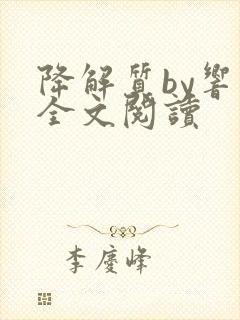 降解質by響
全文閱讀
李慶峰